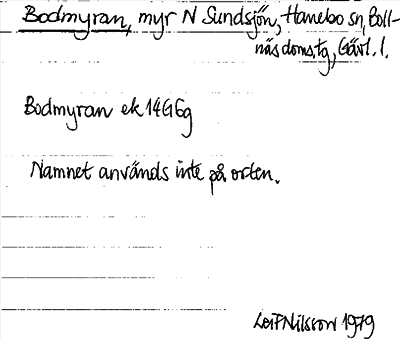 Bodmyran, myr N Sundsjön, Hanebo sn, Boll-
näs doms.tg, Gävl. l.
Bodmyran ek 14G6g
Namnet används inte på orten.
Leif Nilsson 1979